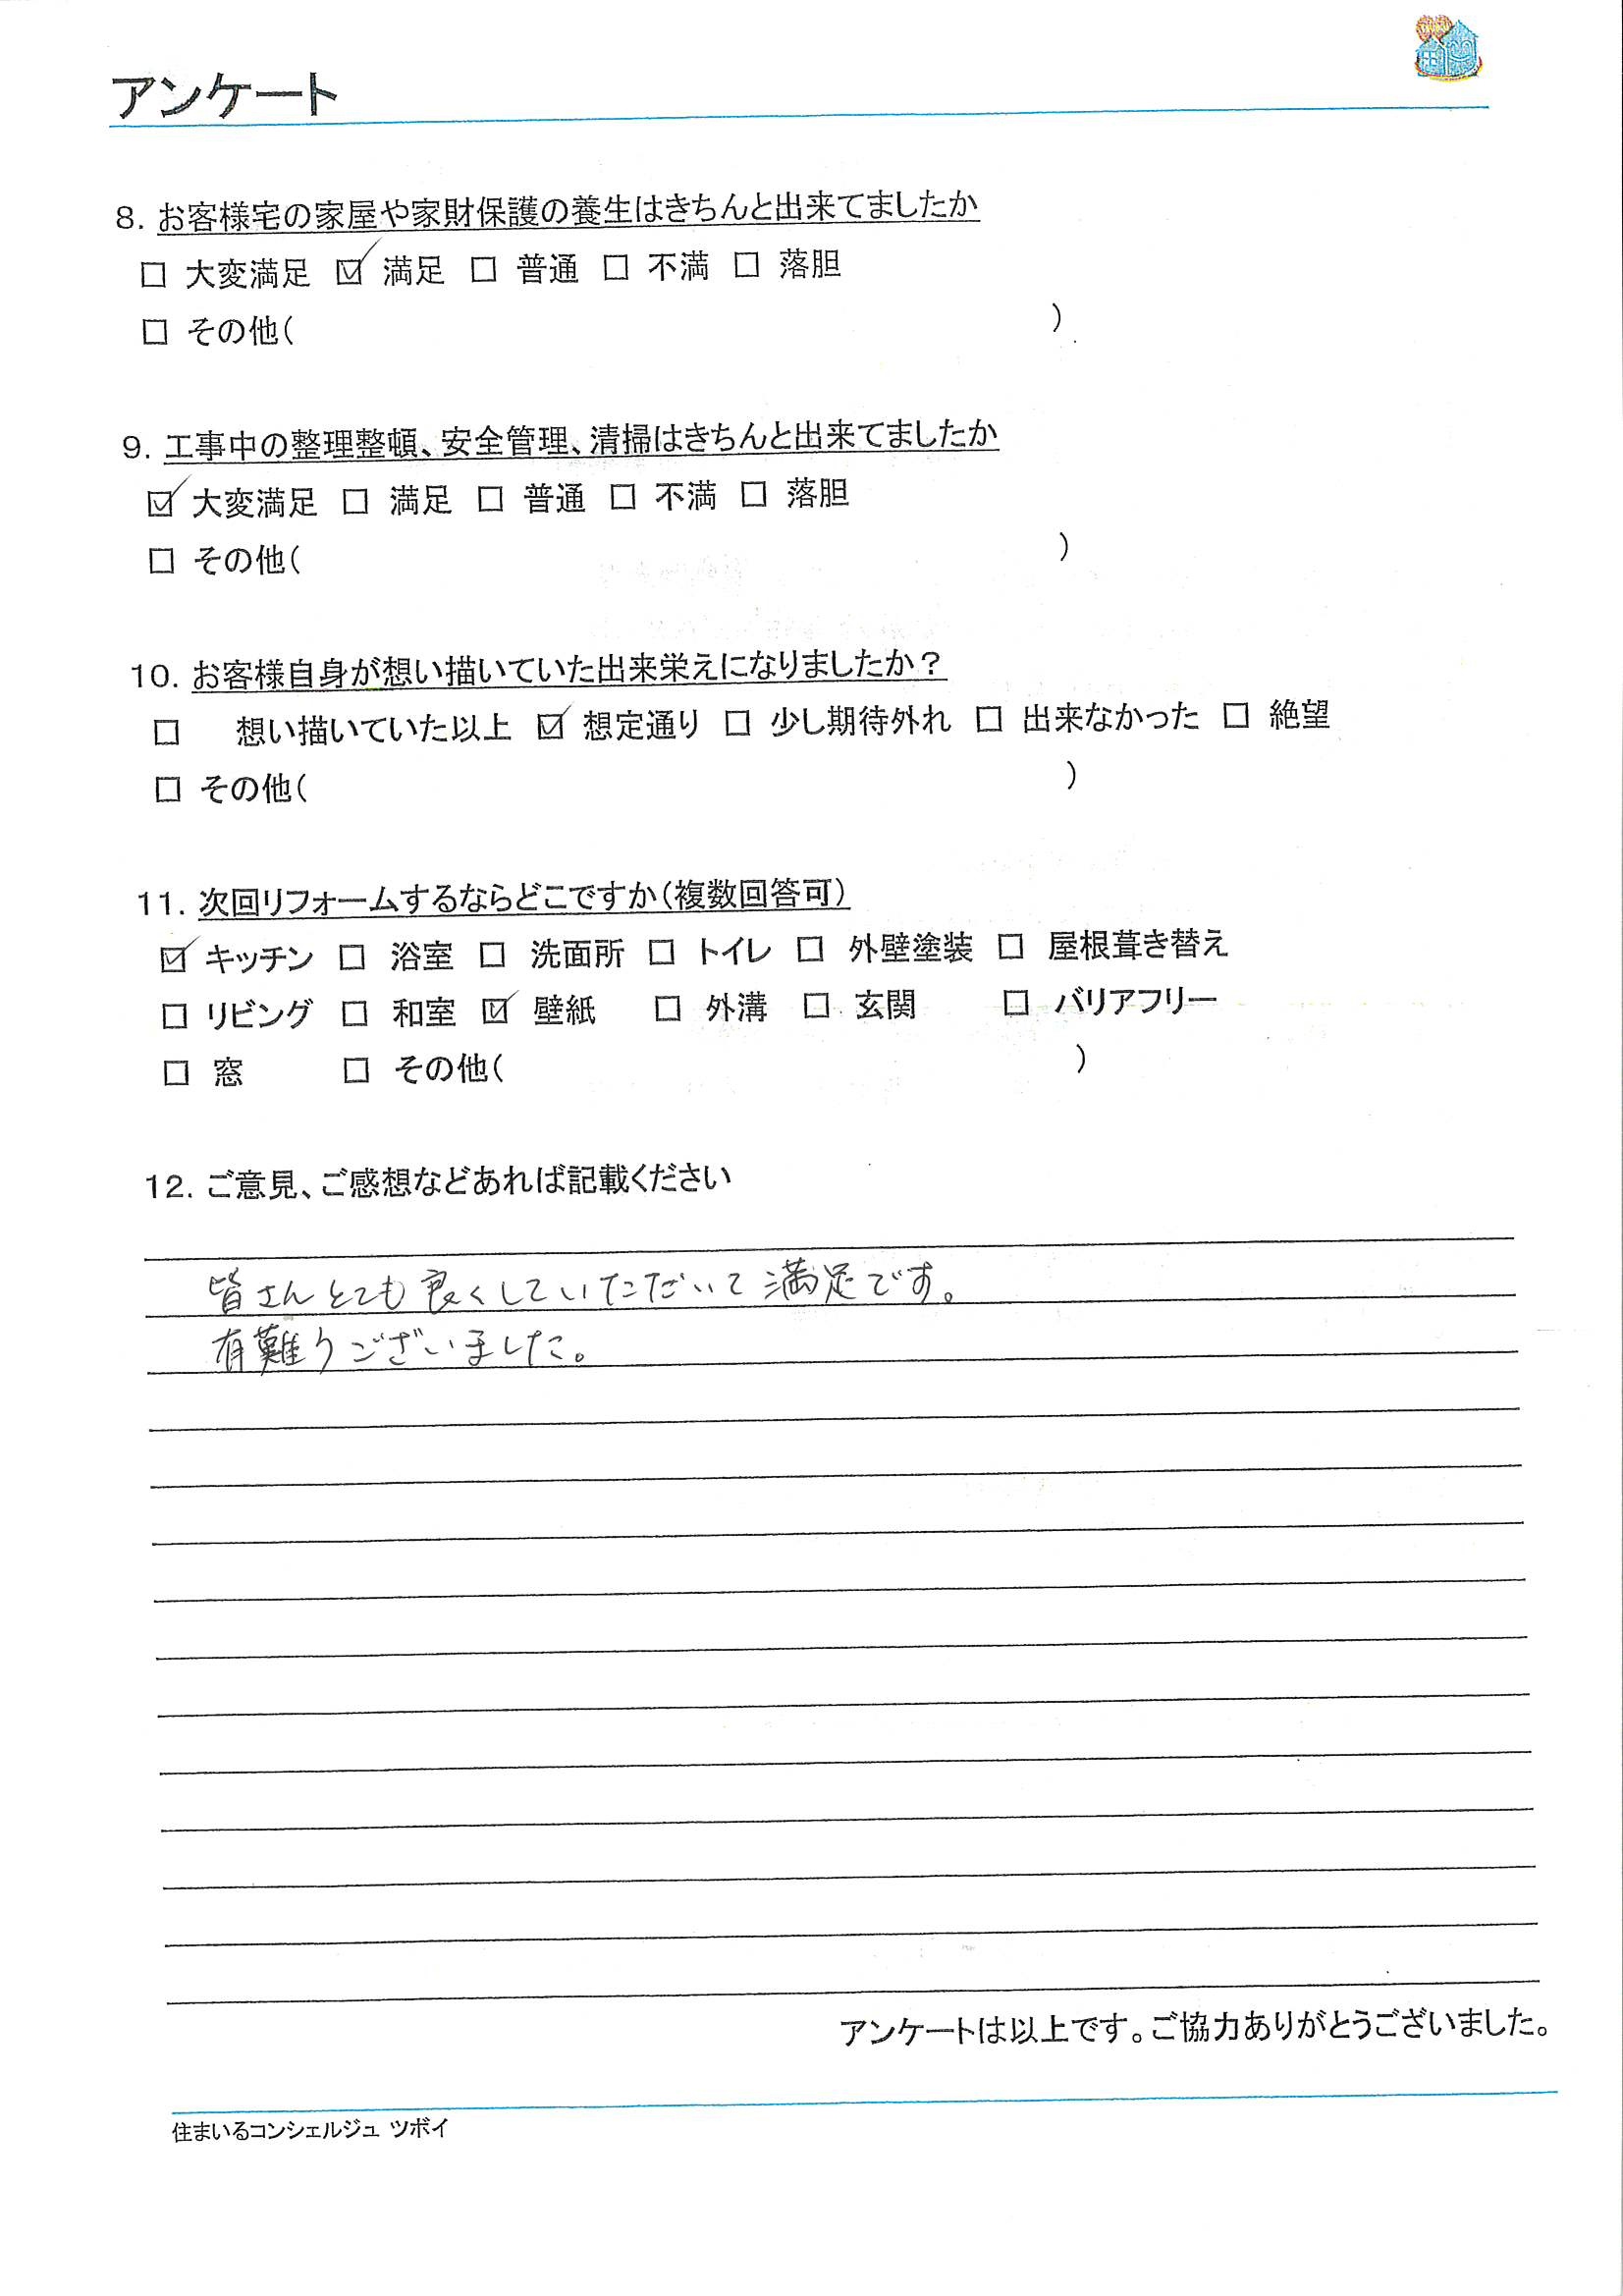 アンケート
8. お客様宅の家屋や家財保護の養生はきちんと出来てましたか
☐ 大変満足 ☑ 満足 ☐ 普通 ☐ 不満 ☐ 落胆
☐ その他( )
9. 工事中の整理整頓、安全管理、清掃はきちんと出来てましたか
☑ 大変満足 ☐ 満足 ☐ 普通 ☐ 不満 ☐ 落胆
☐ その他( )
10. お客様自身が想い描いていた出来栄えになりましたか？
☐ 想い描いていた以上 ☑ 想定通り ☐ 少し期待外れ ☐ 出来なかった ☐ 絶望
☐ その他( )
11. 次回リフォームするならどこですか(複数回答可)
☑ キッチン ☐ 浴室 ☐ 洗面所 ☐ トイレ ☐ 外壁塗装 ☐ 屋根葺き替え
☐ リビング ☐ 和室 ☑ 壁紙 ☐ 外溝 ☐ 玄関 ☐ バリアフリー
☐ 窓 ☐ その他( )
12. ご意見、ご感想などあれば記載ください
皆さんとても良くしていただいて満足です。
有難うございました。
アンケートは以上です。ご協力ありがとうございました。
住まいるコンシェルジュ ツボイ